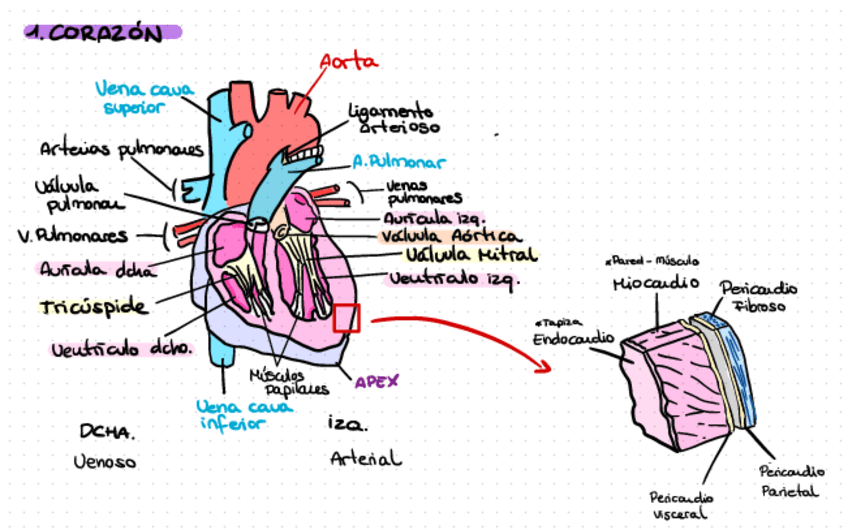 1. CORAZÓN
Aorta
Vena cava
superior
Ligamento
Arterioso
Arterias pulmonares
A. Pulmonar
Válvula
pulmonar
Venas
pulmonares
Aurícula izq.
V. Pulmonares
Válvula Aórtica
Válvula Mitral
Aurícula dcha
Ventrículo izq.
Tricúspide
Ventrículo dcho.
Músculos
papilares
APEX
Vena cava
inferior
DCHA.
Izq.
Venoso
Arterial
*Pared - Músculo
Miocardio
Pericardio
Fibroso
*Tapiza
Endocardio
Pericardio
Parietal
Pericardio
visceral